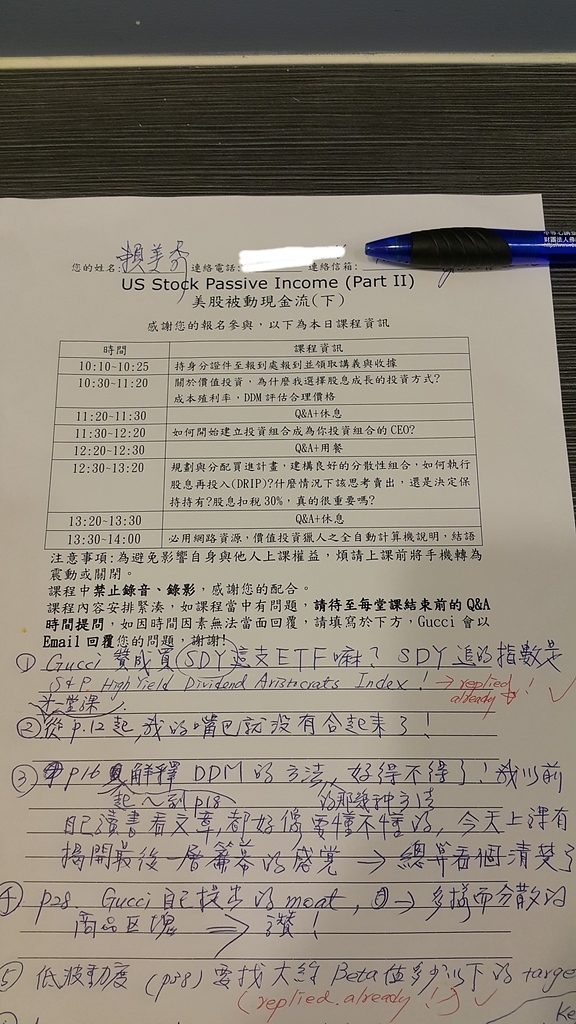 您的姓名:賴美秀 連絡電話: 連絡信箱:
US Stock Passive Income (Part II)
美股被動現金流(下)
感謝您的報名參與,以下為本日課程資訊
時間 課程資訊
10:10~10:25 持身分證件至報到處報到並領取講義與收據
10:30~11:20 關於價值投資,為什麼我選擇股息成長的投資方式?
成本殖利率,DDM 評估合理價格
11:20~11:30 Q&A+休息
11:30~12:20 如何開始建立投資組合成為你投資組合的 CEO?
12:20~12:30 Q&A+用餐
12:30~13:20 規劃與分配買進計畫,建構良好的分散性組合,如何執行
股息再投入(DRIP)?什麼情況下該思考賣出,還是決定保
持持有?股息扣稅 30%,真的很重要嗎?
13:20~13:30 Q&A+休息
13:30~14:00 必用網路資源,價值投資獵人之全自動計算機說明,結語
注意事項:為避免影響自身與他人上課權益,煩請上課前將手機轉為
震動或關閉。
課程中禁止錄音、錄影,感謝您的配合。
課程內容安排緊湊,如課程當中有問題,請待至每堂課結束前的 Q&A
時間提問,如因時間因素無法當面回覆,請填寫於下方,Gucci 會以
Email 回覆您的問題,謝謝!
① Gucci 贊成買 SDY 這支 ETF 嘛? SDY 追的指數是
S&P High Yield Dividend Aristocrats Index! → replied already!
②從 p.12 起,我的嘴巴就沒有合起來了!
③ p16 解釋 DDM 的方法,好得不得了!我以前
起~到 p18 的那幾种方法
自己讀書看文章,都好像要懂不懂的,今天上課有
揭開最後一層簾幕的感覺 → 總算看個清楚了
④ p28. Gucci 自己提出的 moat, → 多樣而分散的
商品區塊 ⇒ 讚!
⑤ 低波動度 (p38) 要找大約 Beta 值多少以下的 targe
(replied already!)